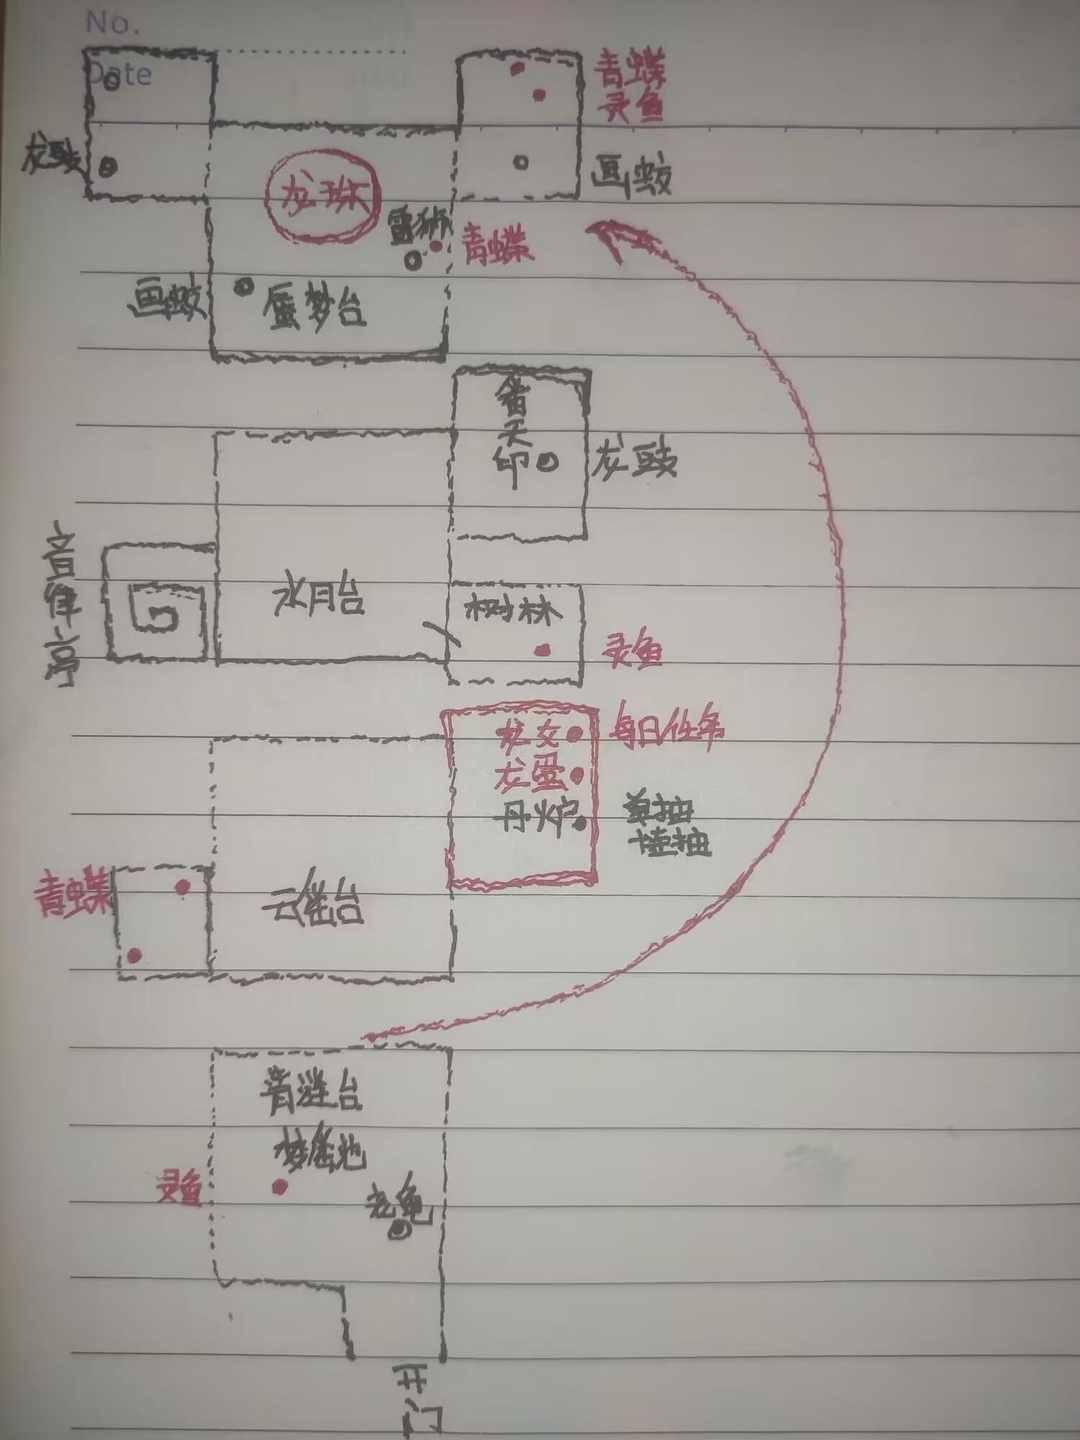 No.
Date
青蝶
灵鱼
龙鼓
画蛟
龙珠
雷狮
青蝶
画蛟
蜃梦台
番
天
印
龙鼓
音
律
亭
水月台
树林
灵鱼
龙女
每日任务
龙蛋
丹炉
单抽
挂抽
青蝶
云崖台
青莲台
灵鱼
老龟
开
门